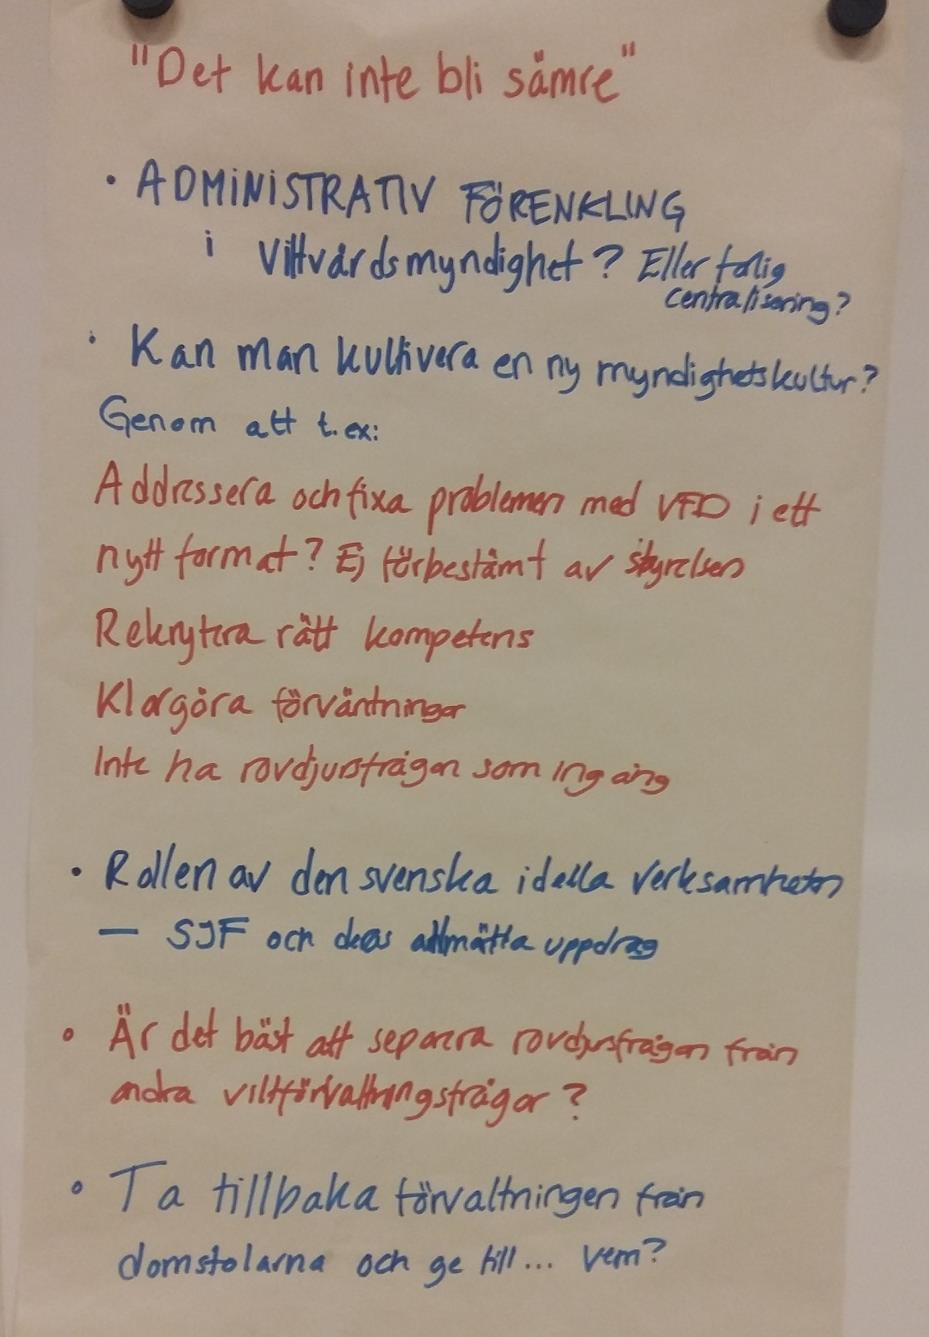 "Det kan inte bli sämre"
• ADMINISTRATIV FÖRENKLING
i Viltvårdsmyndighet? Eller farlig
centralisering?
• Kan man kultivera en ny myndighetskultur?
Genom att t.ex:
Addressera och fixa problemen med VFD i ett
nytt format? Ej förbestämt av styrelsen
Rekrytera rätt kompetens
Klargöra förväntningar
Inte ha rovdjursfrågan som ingång
• Rollen av den svenska ideella verksamheten
— SJF och deras allmätta uppdrag
• Är det bäst att separera rovdjursfrågan från
andra viltförvaltningsfrågor?
• Ta tillbaka förvaltningen från
domstolarna och ge till... vem?